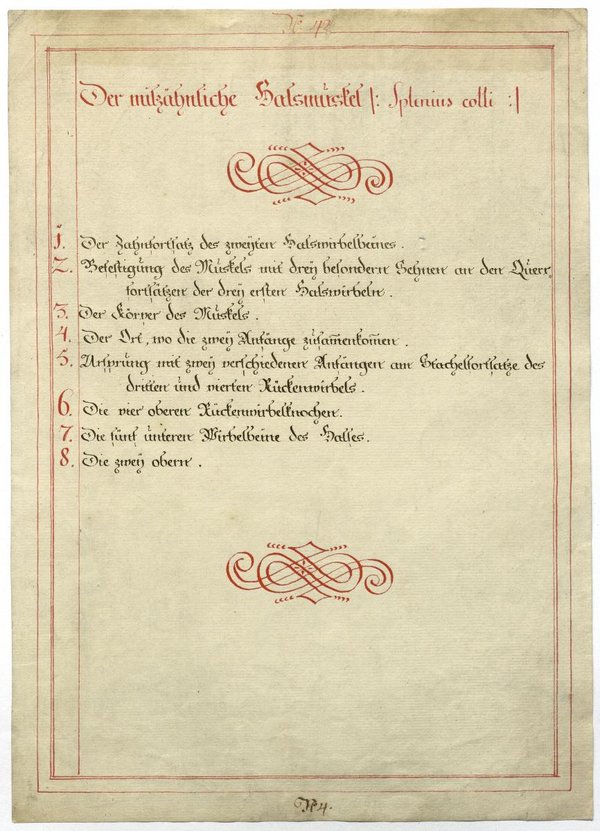 N. 42
Der milzähnliche Halsmuskel |: Splenius colli :|
1. Der Zahnfortsatz des zweyten Halswirbelbeines.
2. Befestigung des Muskels mit drey besondern Sehnen an den Querr-
fortsätzen der drey ersten Halswirbeln.
3. Der Körper des Muskels.
4. Der Ort, wo die zwey Anfänge zusammenkommen.
5. Ursprung mit zwey verschiedenen Anfängen am Stachelfortsatze des
dritten und vierten Rückenwirbels.
6. Die vier oberen Rückenwirbelknochen.
7. Die fünf unteren Wirbelbeine des Halses.
8. Die zwey obern.
N. 4.